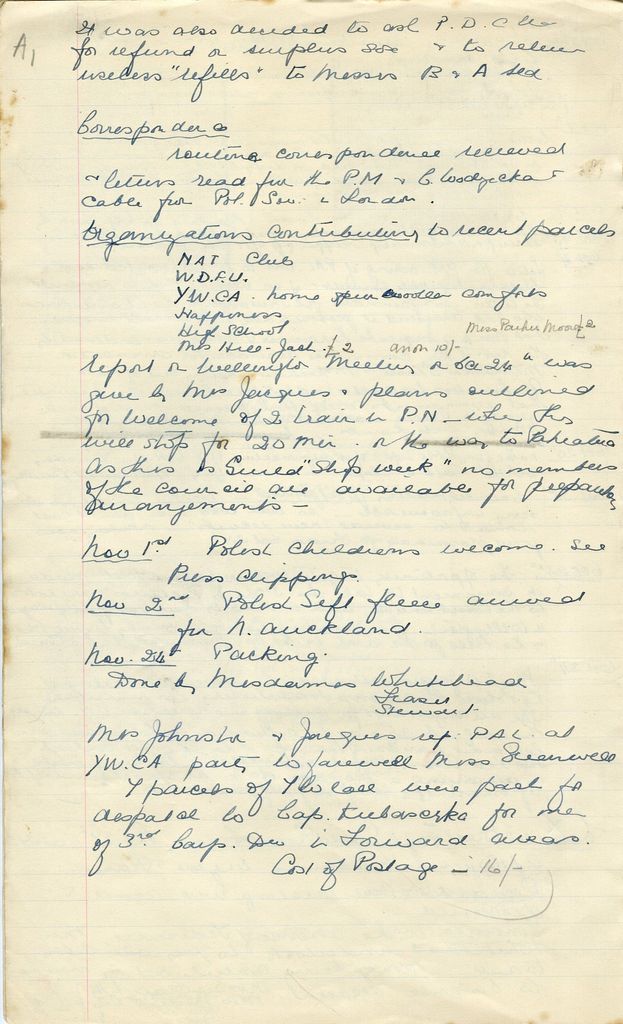 A1
It was also decided to ask P. D. C
for refund on surplus & to return
useless "refills" to Messrs B & A
Correspondence
routine correspondence received
& letters read from the P.M & C. Wodzicka &
Cable from Pol. in London.
Organizations contributing to recent parcels
NAT Club
W.D.F.U.
Y.W.C.A. home woollen comforts
Happiness
High School
Miss Parker Moore £2
Mrs Hill-Jack £2 anon 10/-
report on Wellington Meeting on Oct 24th was
given by Mrs Jacques & plans outlined
for welcome of 2 train in P.N – when this
will stop for 20 min. on the way to Pahiatua
As this is Guild "Shop week" no members
of the council are available for preparatory
arrangements –
Nov 1st Polish Childrens welcome. See
Press clippings.
Nov 2nd Polish Gift fleece arrived
from N. Auckland.
Nov. 24th Packing.
Done by Mesdames Whitehead
Fraser
Stewart
Mrs Johnston & Jacques rep. P.A.L. at
Y.W.C.A party to farewell Miss
7 parcels of 7 lb each were packed for
despatch to Cap. for men
of 3rd Carp. Div in Forward areas.
Cost of Postage – 16/-